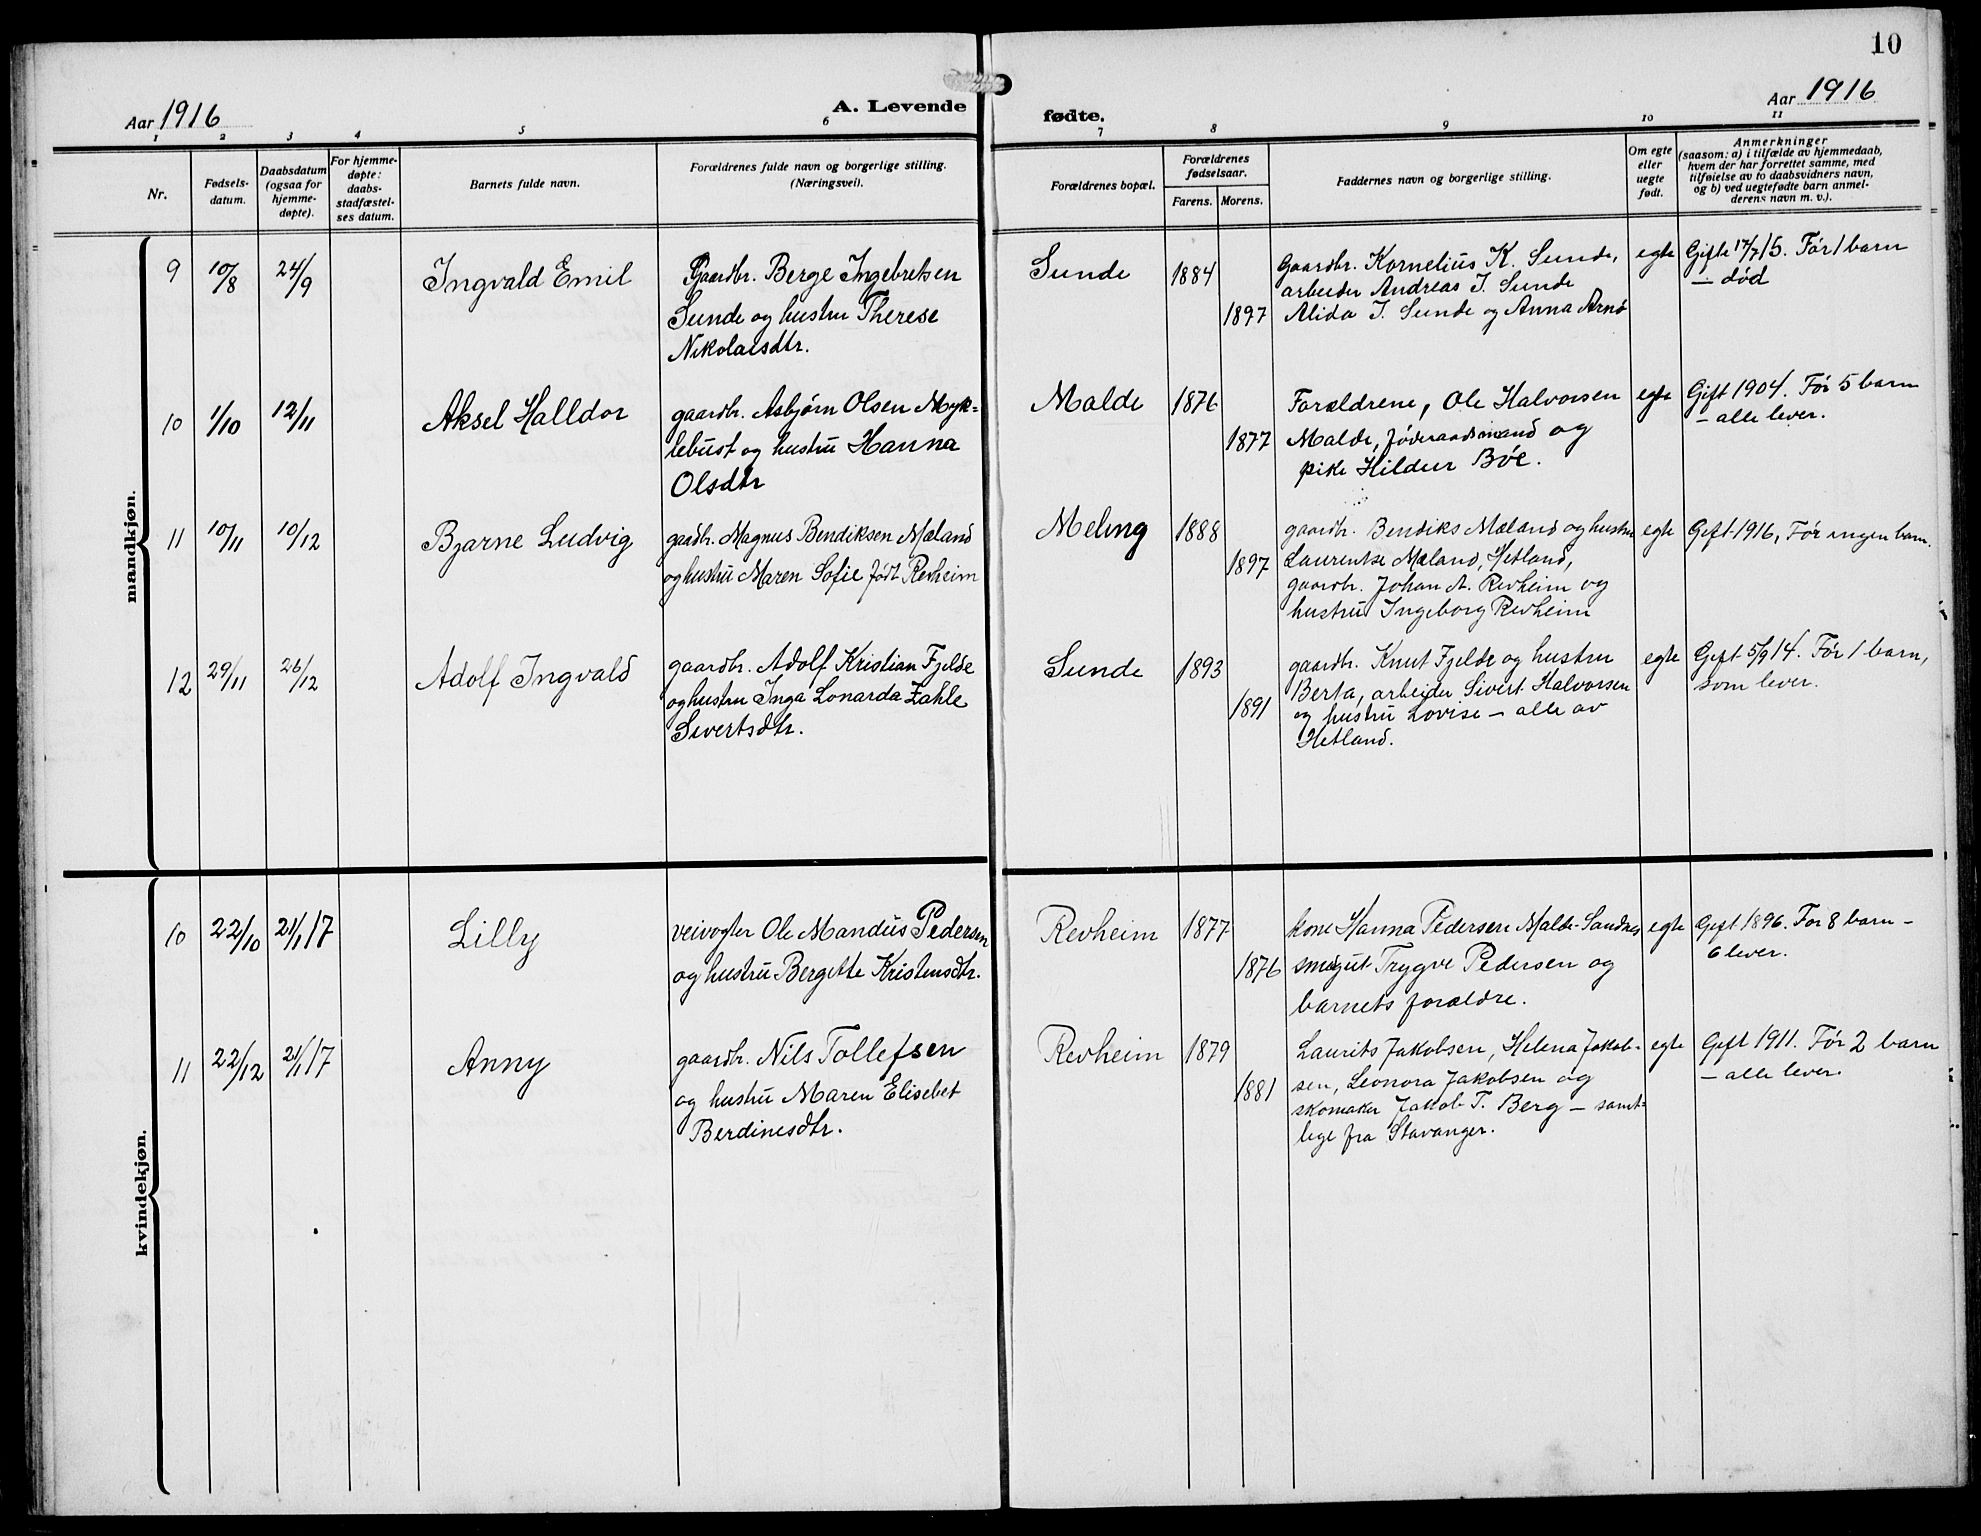 10
Aar 1916
A. Levende
fødte.
Aar 1916
1 2 3 4 5 6 7 8 9 10 11
Nr.
Fødsels-
datum.
Daabsdatum
(ogsaa for
hjemme-
døpte).
For hjemme-
døpte:
daabs-
stadfæstel-
ses datum.
Barnets fulde navn.
Forældrenes fulde navn og borgerlige stilling.
(Næringsvei).
Forældrenes bopæl.
Forældrenes
fødselsaar.
Farens. Morens.
Faddernes navn og borgerlige stilling.
Om egte
eller
uegte
født.
Anmerkninger
(saasom: a) i tilfælde av hjemmedaab,
hvem der har forrettet samme, med
tilføielse av to daabsvidners navn,
og b) ved uegtefødte barn anmel-
derens navn m. v.).
mandkjøn.
9 10/8 24/9
Ingvald Emil
Gaardbr. Berge Ingebretsen
Sunde og hustru Therese
Nikolaisdtr.
Sunde
1884
1897
Gaardbr. Kornelius K. Sunde,
arbeider Andreas J. Sunde
Alida J. Sunde og Anna Arnø
egte
Gifte 17/7 15. Før 1 barn
– død
10 1/10 12/11
Aksel Halldor
gaardbr. Asbjørn Olsen Myk-
lebust og hustru Hanna
Olsdtr
Malde
1876
1877
Forældrene, Ole Halvorsen
Malde, føderaadsmand og
pike Hildur Bøe.
egte
Gift 1904. Før 5 barn
– alle lever.
11 10/11 10/12
Bjarne Ludvig
gaadbr. Magnus Bendiksen Mæland
og hustru Maren Sofie født Revheim
Meling
1888
1897
gaardbr. Bendiks Mæland og hustru
Laurentse Mæland, Hetland,
gaardbr. Johan A. Revheim og
hustru Ingeborg Revheim
egte
Gift 1916, Før ingen barn.
12 29/11 26/12
Adolf Ingvald
gaardbr. Adolf Kristian Fjelde
og hustru Inga Lonarda Zahle
Sivertsdtr.
Sunde
1893
1891
gaardbr. Knut Fjelde og hustru
Berta, arbeider Sivert Halvorsen
og hustru Lovise – alle av
Hetland.
egte
Gift 5/9 14. Før 1 barn,
som lever.
kvindekjøn.
10 22/10 21/1 17
Lilly
veivogter Ole Mandus Pedersen
og hustru Bergitte Kristensdtr.
Revheim
1877
1876
kone Hanna Pedersen Malde-Sandnes
smagut Trygve Pedersen og
barnets forældre.
egte
Gift 1896. Før 8 barn –
6 lever.
11 22/12 21/1 17
Anny
gaardbr. Nils Tollefsen
og hustru Maren Elisebet
Berdinesdtr.
Revheim
1879
1881
Laurits Jakobsen, Helena Jakob-
sen, Leonora Jakobsen og
skomaker Jakob T. Berg – samt-
lige fra Stavanger.
egte
Gift 1911. Før 2 barn
– alle lever.